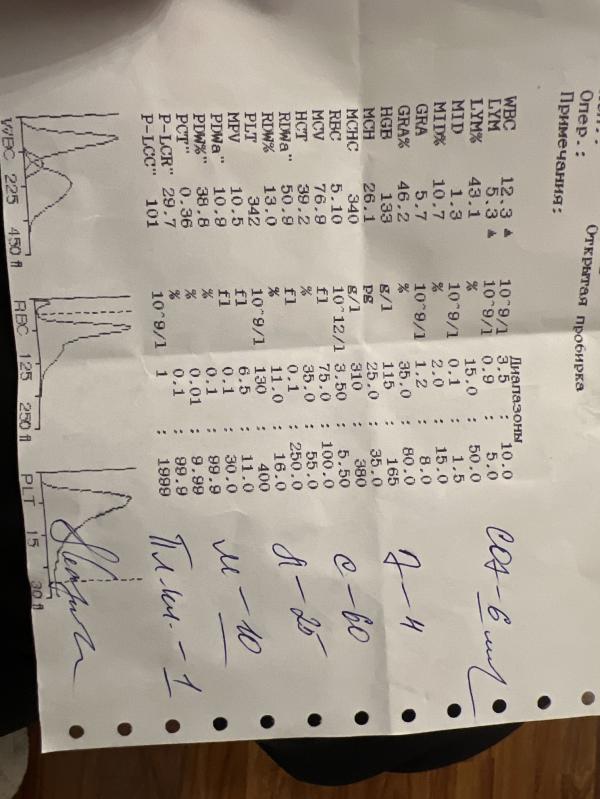 Опер.: Открытая пробирка
Примечания:
Диапазоны
WBC 12.3 ▲ 10^9/l 3.5 : 10.0
LYM 5.3 ▲ 10^9/l 0.9 : 5.0
LYM% 43.1 % 15.0 : 50.0
MID 1.3 10^9/l 0.1 : 1.5
MID% 10.7 % 2.0 : 15.0
GRA 5.7 10^9/l 1.2 : 8.0
GRA% 46.2 % 35.0 : 80.0
HGB 133 g/l 115 : 165
MCH 26.1 pg 25.0 : 35.0
MCHC 340 g/l 310 : 380
RBC 5.10 10^12/l 3.50 : 5.50
MCV 76.9 fl 75.0 : 100.0
HCT 39.2 % 35.0 : 55.0
RDWa" 50.9 fl 0.1 : 250.0
RDW% 13.0 % 11.0 : 16.0
PLT 342 10^9/l 130 : 400
MPV 10.5 fl 6.5 : 11.0
PDWa" 10.9 fl 0.1 : 30.0
PDW%" 38.8 % 0.1 : 99.9
PCT" 0.36 % 0.01 : 9.99
P-LCR" 29.7 % 0.1 : 99.9
P-LCC" 101 10^9/l 1 : 1999
СОЭ - 6 мм/
Э - 4
С - 60
Л - 25
М - 10
Пл.кл. - 1
WBC 225 450 fl
RBC 125 250 fl
PLT 15 30 fl